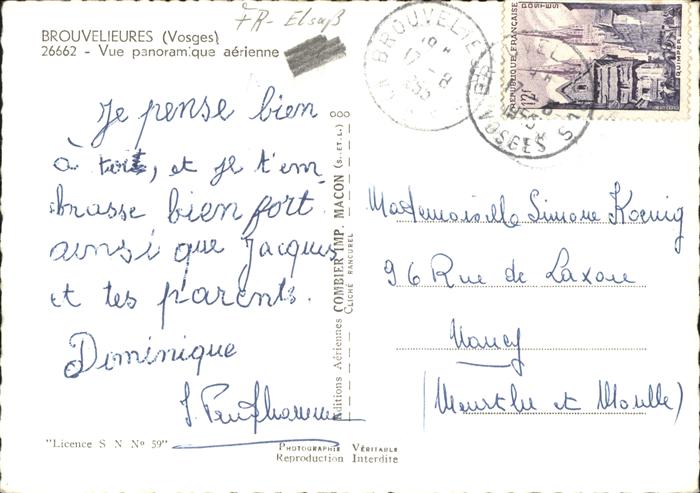 FR- Elsaß
BROUVELIEURES (Vosges)
26662 - Vue panoramique aérienne
Je pense bien
à toi, et je t'em
brasse bien fort
ainsi que Jacques
et tes parents.
Dominique
"Licence S N Nº 59"
Editions Aériennes COMBIER IMP. MACON (S.-ET-L.)
CLICHÉ RANCUREL
PHOTOGRAPHIE VÉRITABLE
Reproduction Interdite
BROUVELIEURES
VOSGES
REPUBLIQUE FRANÇAISE
POSTES
12F
QUIMPER
Mademoiselle Simone Koenig
96 Rue de Laxou
Nancy
(Meurthe et Moselle)